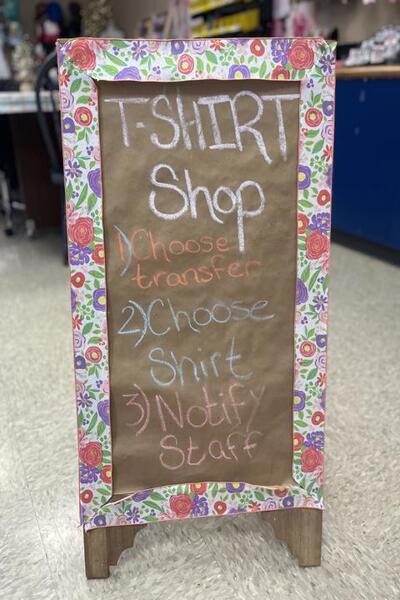 T-SHIRT
Shop
1) Choose
transfer
2) Choose
Shirt
3) Notify
Staff